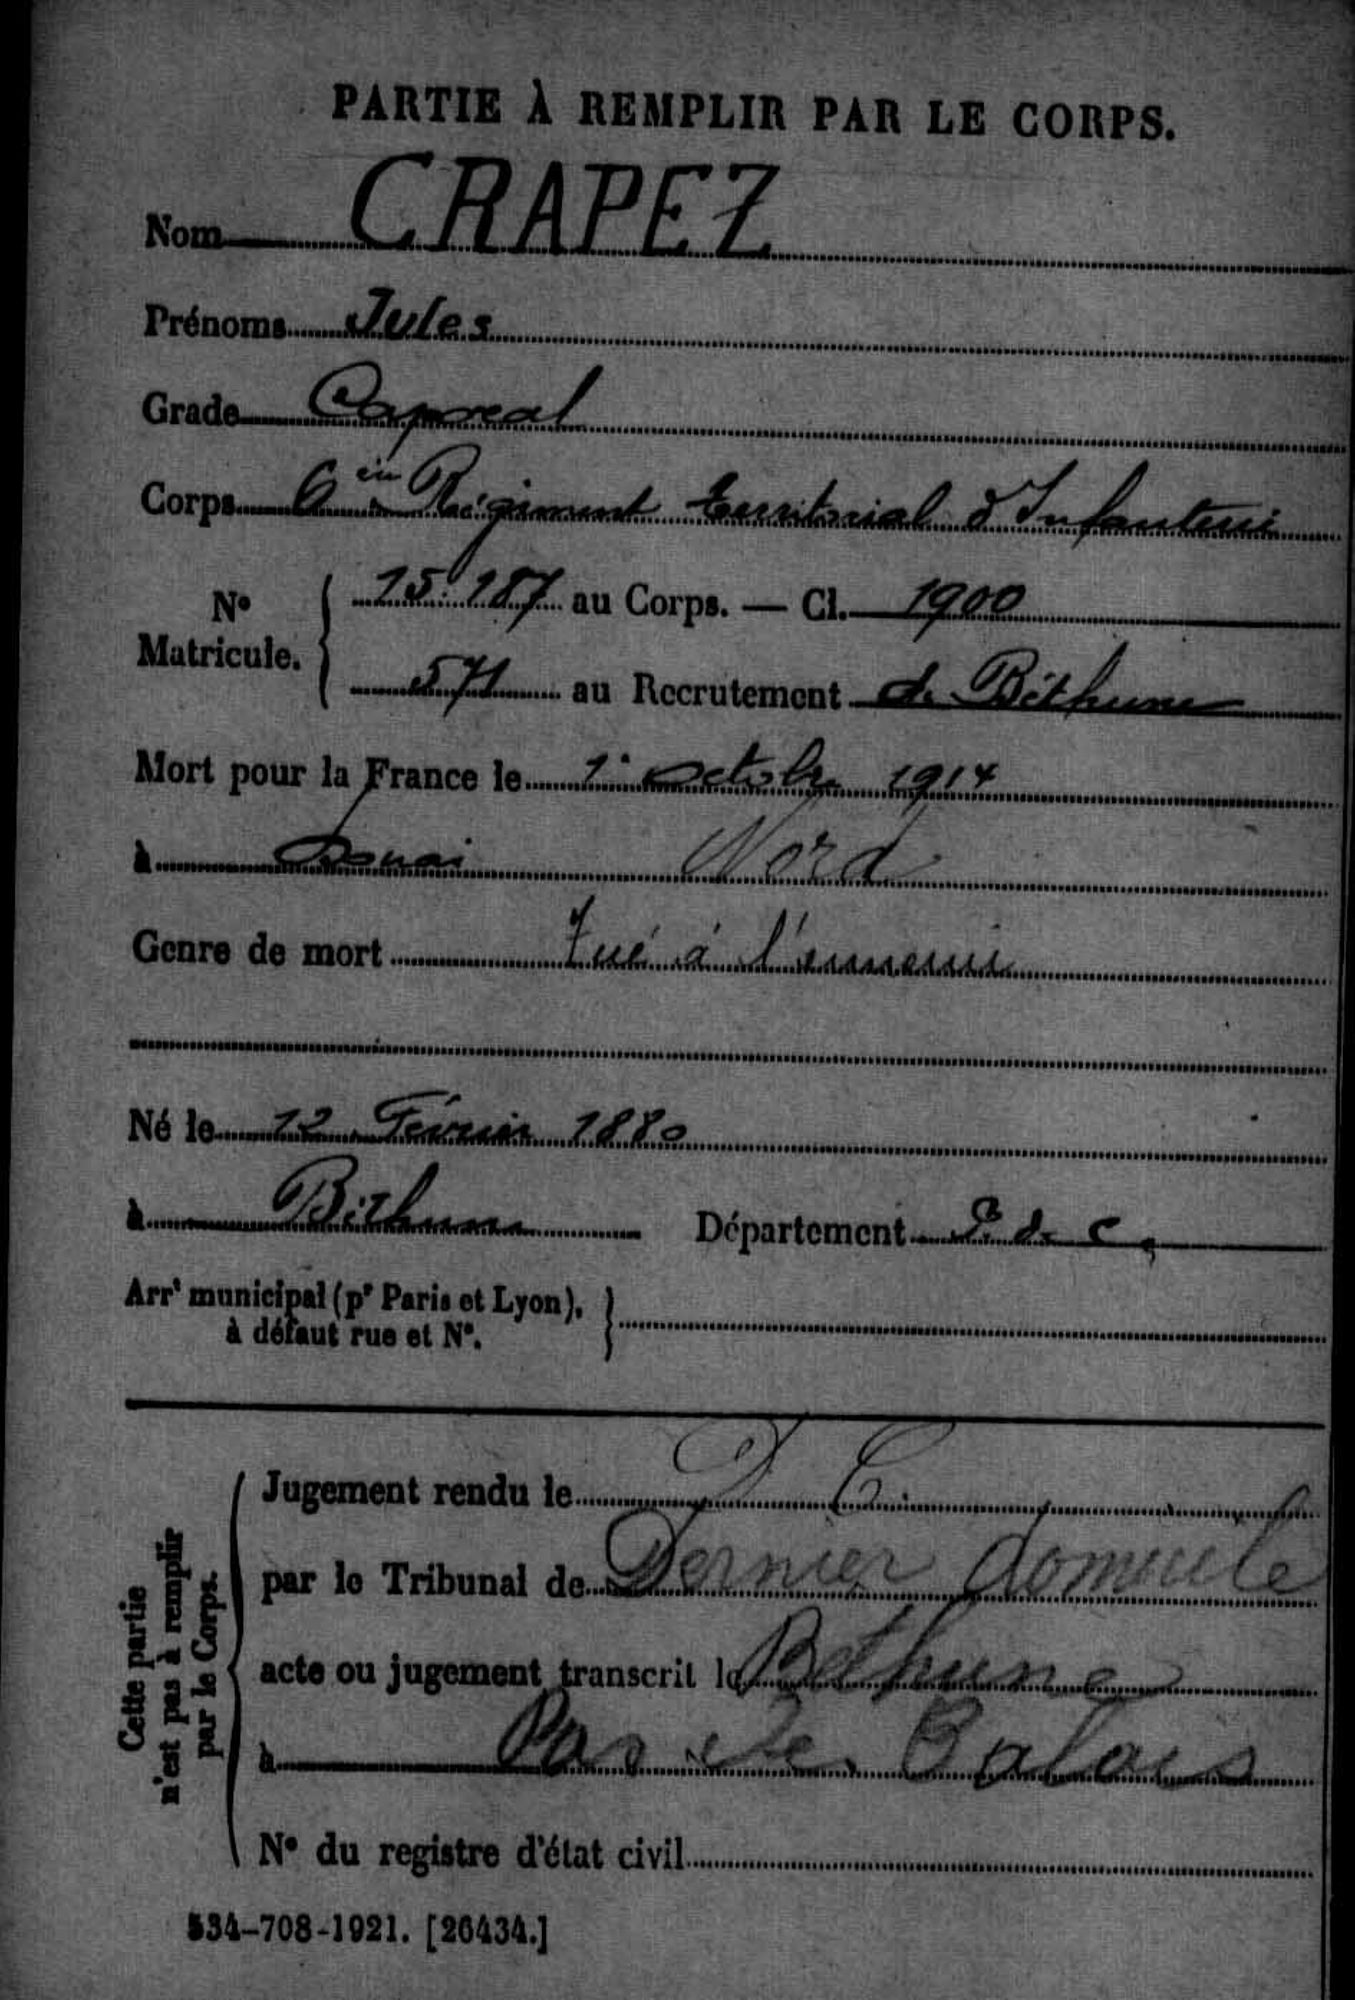 PARTIE À REMPLIR PAR LE CORPS.
Nom CRAPEZ
Prénoms Jules
Grade Caporal
Corps 6ème Régiment territorial d'Infanterie
N° Matricule. 15.187 au Corps. — Cl. 1900
571 au Recrutement de Béthune
Mort pour la France le 1er octobre 1914
à Douai Nord
Genre de mort Tué à l'ennemi
Né le 12 Février 1880
à Béthune Département P. de C,
Arrt municipal (pr Paris et Lyon),
à défaut rue et N°.
Cette partie
n'est pas à remplir
par le Corps.
Jugement rendu le D C.
par le Tribunal de Dernier domicile
acte ou jugement transcrit le Bethune
à Pas de Calais
N° du registre d'état civil
534-708-1921. [26434.]